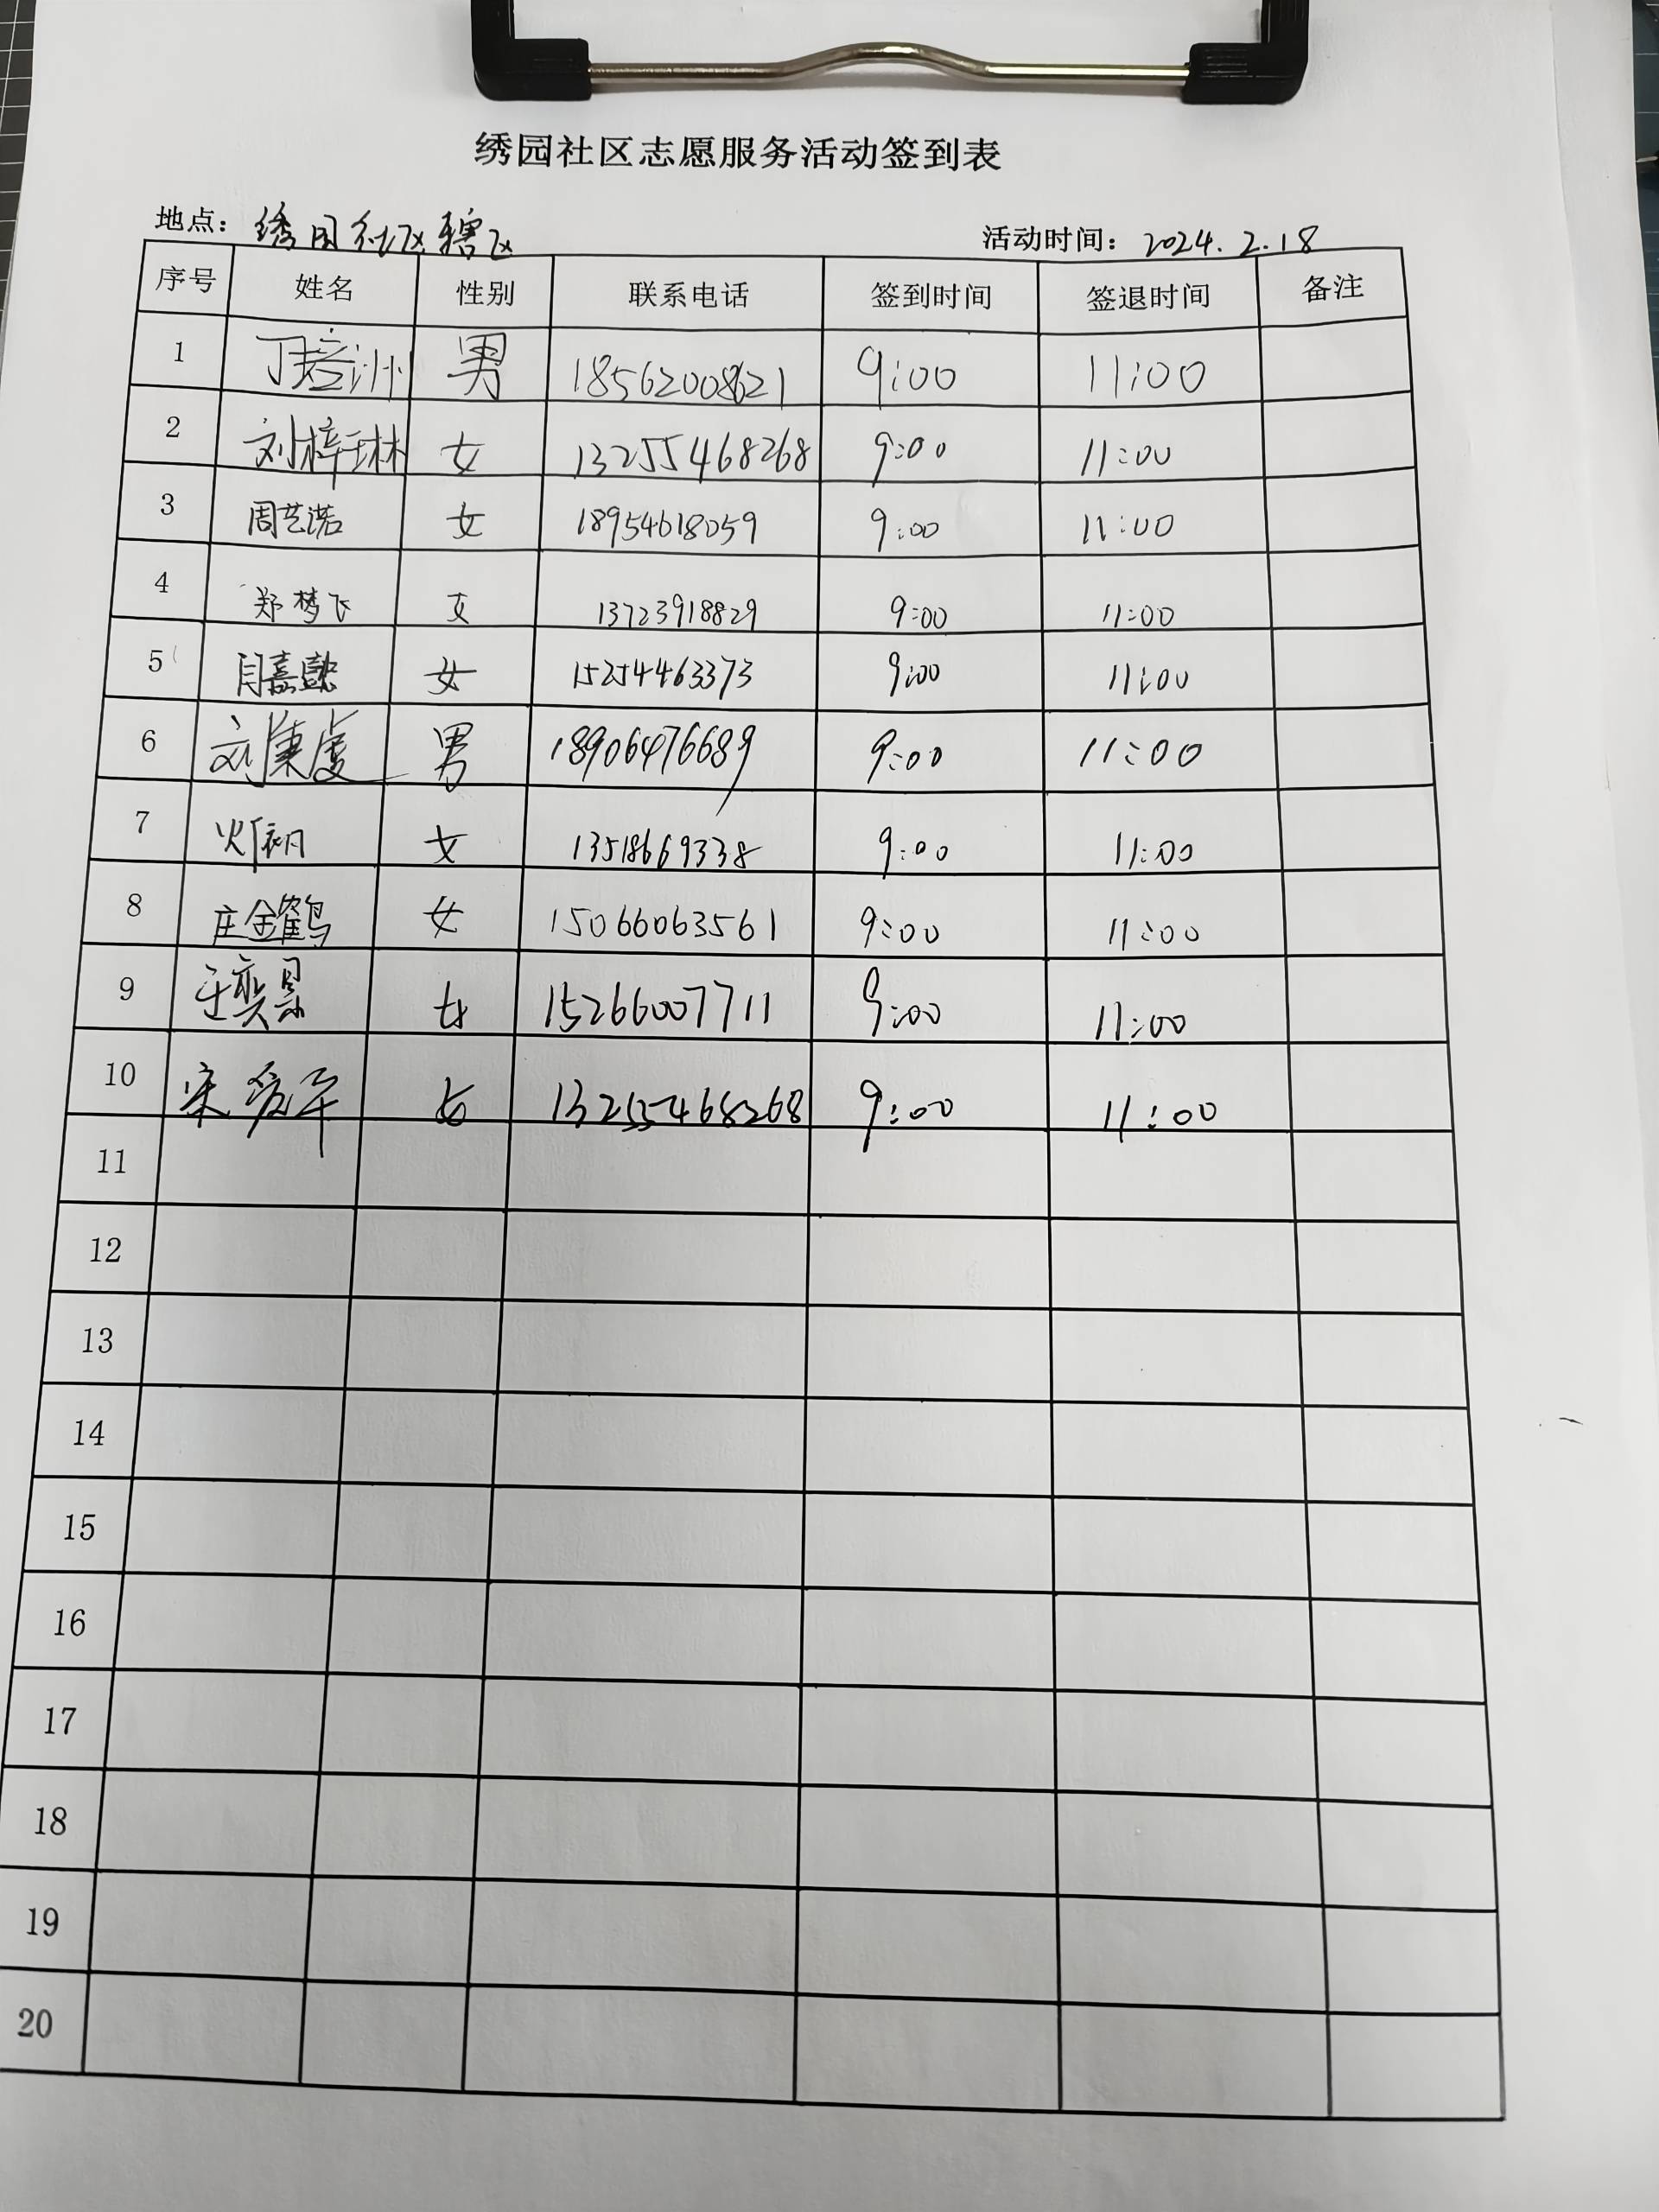 绣园社区志愿服务活动签到表
地点：绣园社区辖区 活动时间：2024.2.18
序号 姓名 性别 联系电话 签到时间 签退时间 备注
1 丁培洲 男 18562008621 9:00 11:00
2 刘梓琳 女 13255468268 9:00 11:00
3 周艺诺 女 18954618059 9:00 11:00
4 郑梦飞 女 13723918829 9:00 11:00
5 闫嘉懿 女 15254463373 9:00 11:00
6 刘秉虔 男 18906476689 9:00 11:00
7 女 13518669338 9:00 11:00
8 庄金鹤 女 15066063561 9:00 11:00
9 女 15266007711 9:00 11:00
10 宋爱军 女 13255468268 9:00 11:00
11
12
13
14
15
16
17
18
19
20